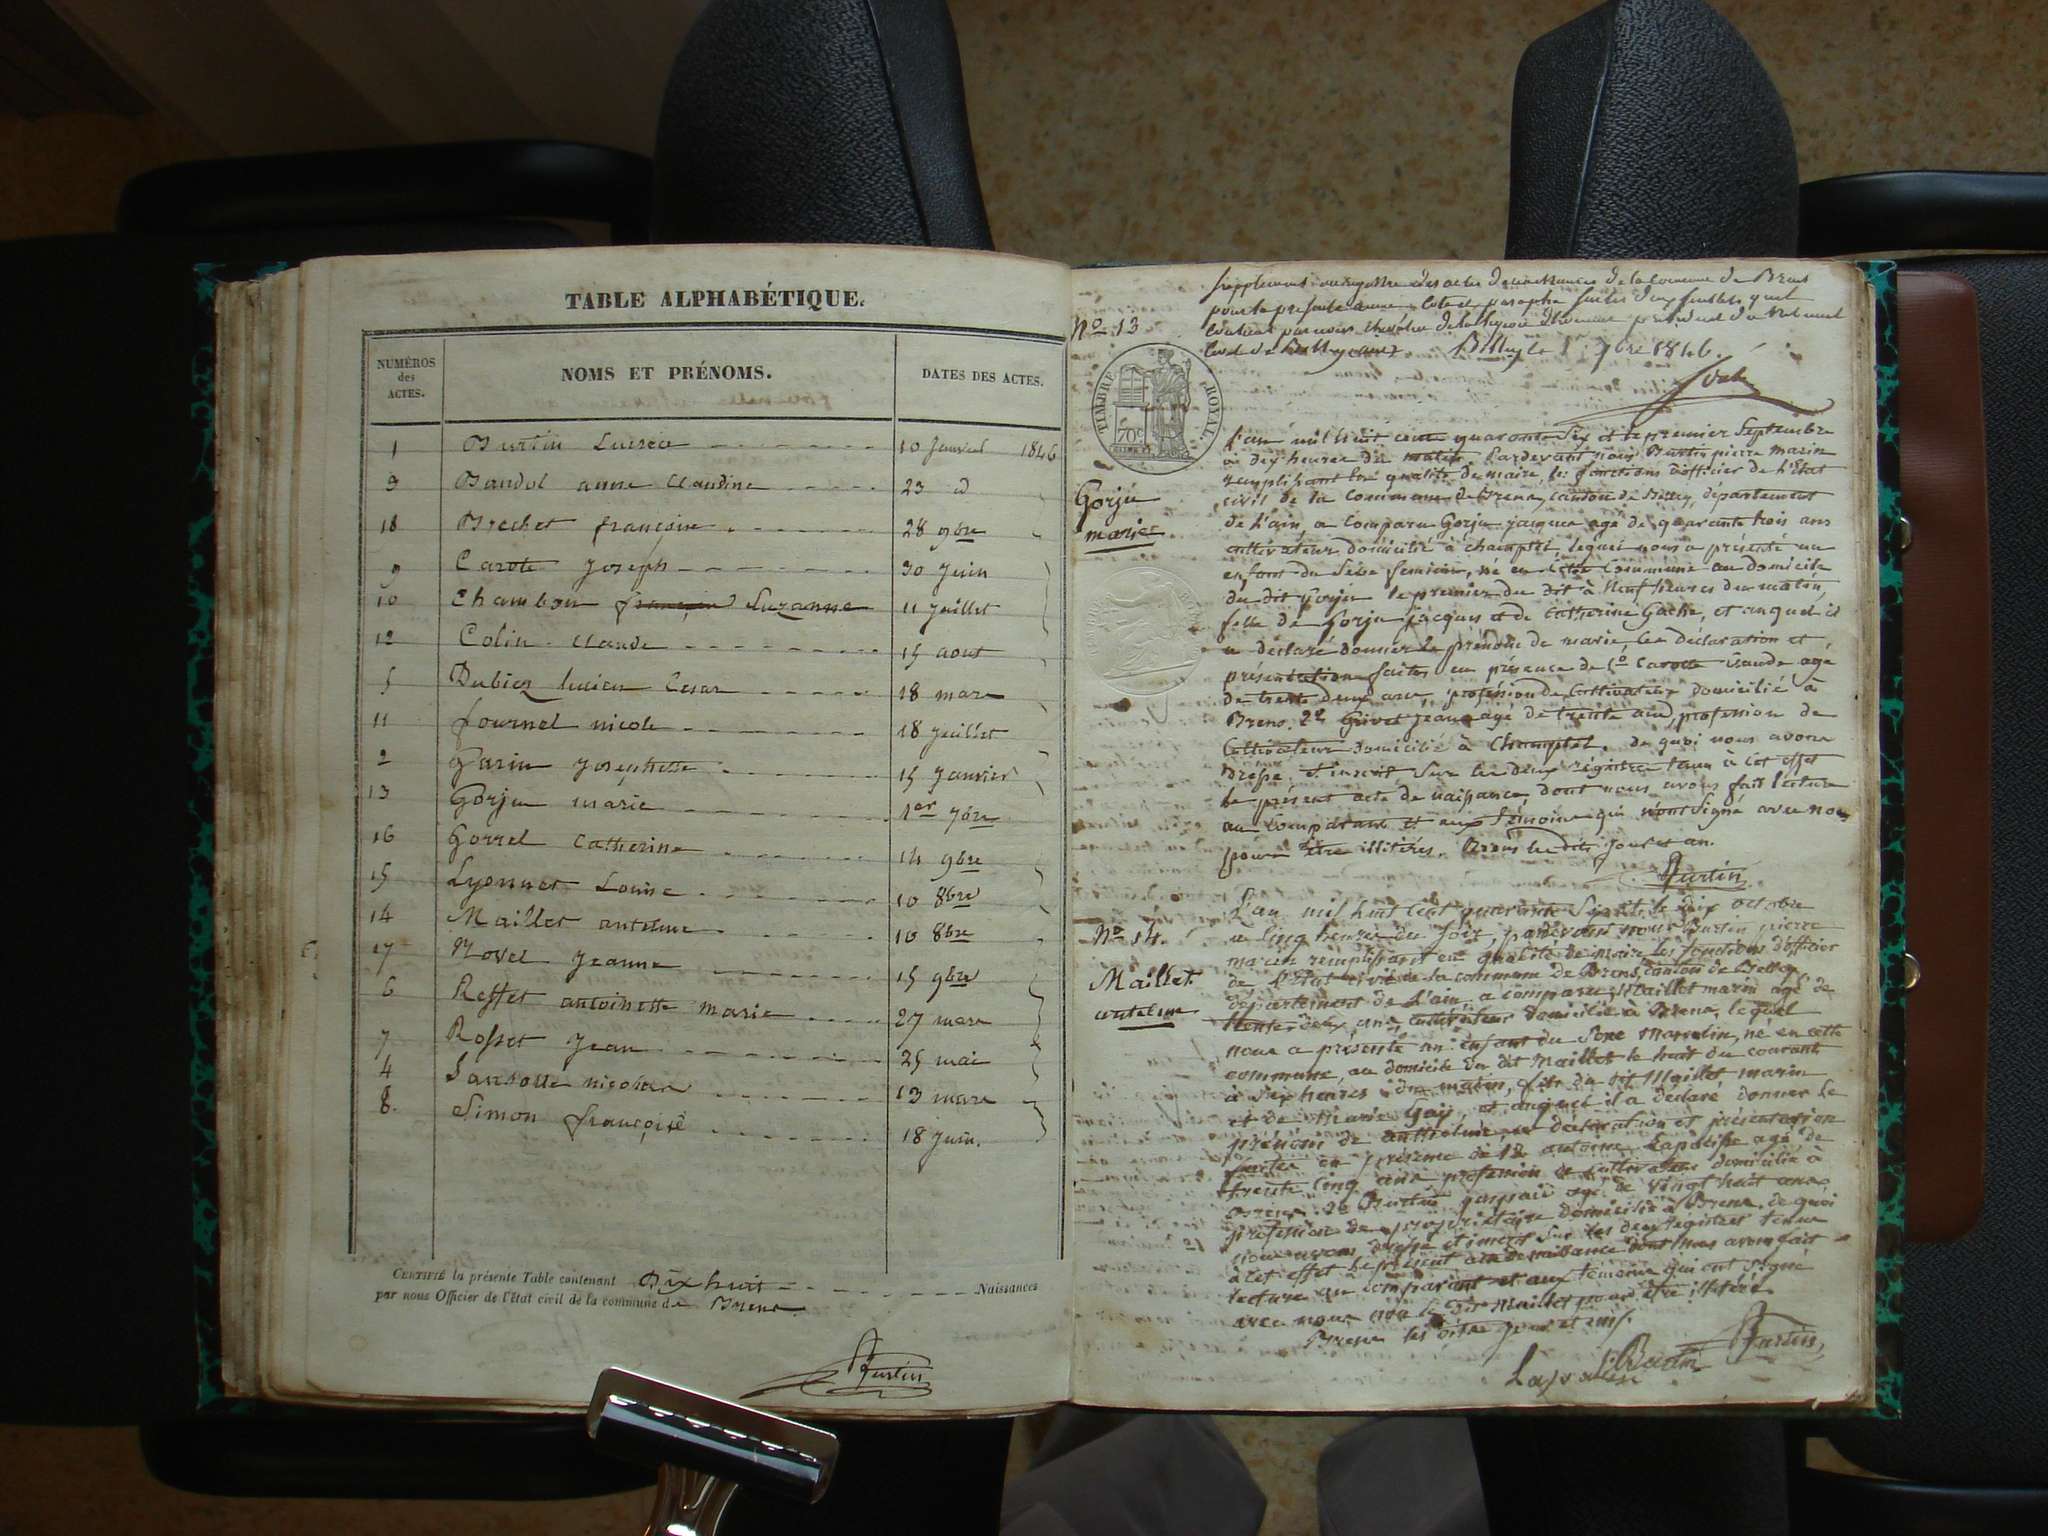 TABLE ALPHABÉTIQUE.
NUMÉROS
des
ACTES.
NOMS ET PRÉNOMS.
DATES DES ACTES.
1 Burtin 10 Janvier 1846
Bandol anne Claudine 23 d
18 Brechet françoise 28 9bre
9 Carote Joseph 30 Juin
10 Chambon françoise Suzanne 11 Juillet
12 Colin Claude 15 aout
5 Dubiez lucien Cesar 18 mars
11 fournel nicole 18 Juillet
2 Garin Josephette 15 Janvier
13 Gorju marie 1er 7bre
16 Gorrel Catherine 14 9bre
15 Lyonnet Louise 10 8bre
14 Maillet antelme 10 8bre
17 Novel Jeanne 15 9bre
6 Reffet antoinette marie 27 mars
7 Rosset Jean 25 mai
4 nicolas 13 mars
8. Simon françoise 18 Juin.
CERTIFIÉ la présente Table contenant Dix huit Naissances
par nous Officier de l'état civil de la commune de Brens
Burtin
supplement au registre des actes de naissances de la Commune de Brens
pour la presente année, Coté et paraphé
par nous Chevalier de la légion d'honneur président du tribunal
Civil de Belley Belley le 1 7bre 1846.
No. 13
TIMBRE ROYAL
70c
Gorju
marie
L'an mil huit cent quarante Six et le premier Septembre
à dix heures du matin, Pardevant nous Burtin pierre marin
remplissant en qualité de maire, les fonctions d'officier de l'Etat
civil de la Commune de Brens, canton de Belley, département
de l'ain, a Comparu Gorju jacques agé de quarante trois ans
cultivateur domicilié à champtel, lequel nous a présenté un
enfant du Sexe feminin, né en cette Commune au domicile
du dit Gorju le premier du dit à Neuf heures du matin,
fille de Gorju Jacques et de Catherine Gache, et auquel il
a déclaré donner le prénom de marie, les déclaration et
présentation faites en présence de 1o Carotte Claude agé
de trente deux ans, profession de Cultivateur domicilié à
Brens. 2o Grivet Jean agé de trente ans, profession de
Cultivateur domicilié à Champtel. de quoi nous avons
dressé et inscrit Sur les deux régistres tenus à cet effet
le présent acte de naissance, dont nous avons fait lecture
au Comparant et aux témoins qui n'ont Signé avec nous
pour être illitérés. Brens les dits jour et an.
Burtin
No. 14.
Maillet
antelme
L'an mil huit Cent quarante Six et le dix octobre
a Cinq heures du Soir, pardevant nous Burtin pierre
marin remplissant en qualité de maire les fonctions d'officier
de l'Etat civil de la commune de Brens, Canton de Belley
département de L'ain, a comparu Maillet marin agé de
trente deux ans, cultivateur domicilié à Brens, lequel
nous a présenté un enfant du Sexe Masculin, né en cette
commune, au domicile du dit Maillet le huit du courant
à Six heures du matin, fils du dit Maillet marin
et de Marie Gay, et auquel il a déclaré donner le
prénom de anthelme, les déclaration et présentation
faites en présence de 1o antoine Lapalisse agé de
trente Cinq ans profession de Cultivateur domicilié à
Brens. 2o Burtin agé de vingt huit ans
profession de propriétaire domicilié à Brens. de quoi
nous avons dressé et inscrit Sur les deux régistres tenus
à cet effet le présent acte de naissance dont nous avons fait
lecture au comparant et aux témoins qui ont signé
avec nous non le dit Maillet pour être illitéré.
Brens les dits jour et an.
Burtin
Burtin